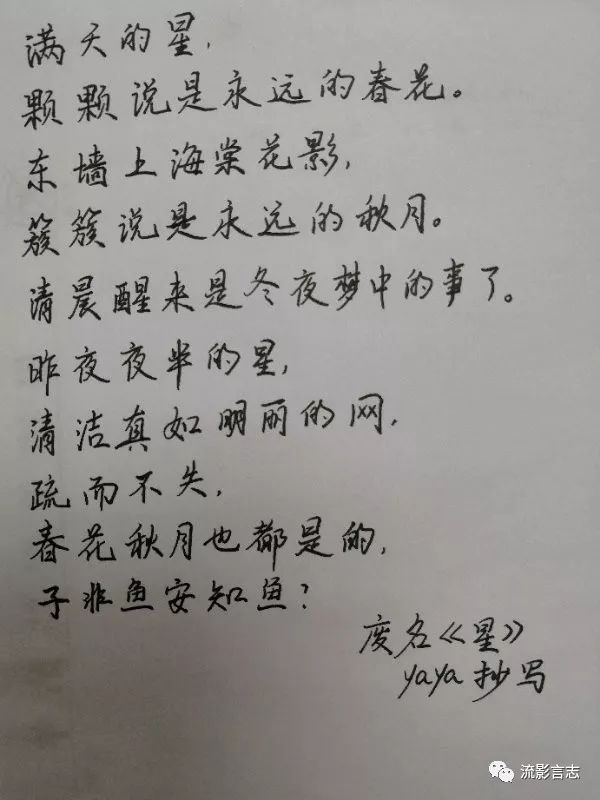 满天的星，
颗颗说是永远的春花。
东墙上海棠花影，
簇簇说是永远的秋月。
清晨醒来是冬夜梦中的事了。
昨夜夜半的星，
清洁真如明丽的网，
疏而不失，
春花秋月也都是的，
子非鱼安知鱼？
废名《星》
yaya抄写
流影言志